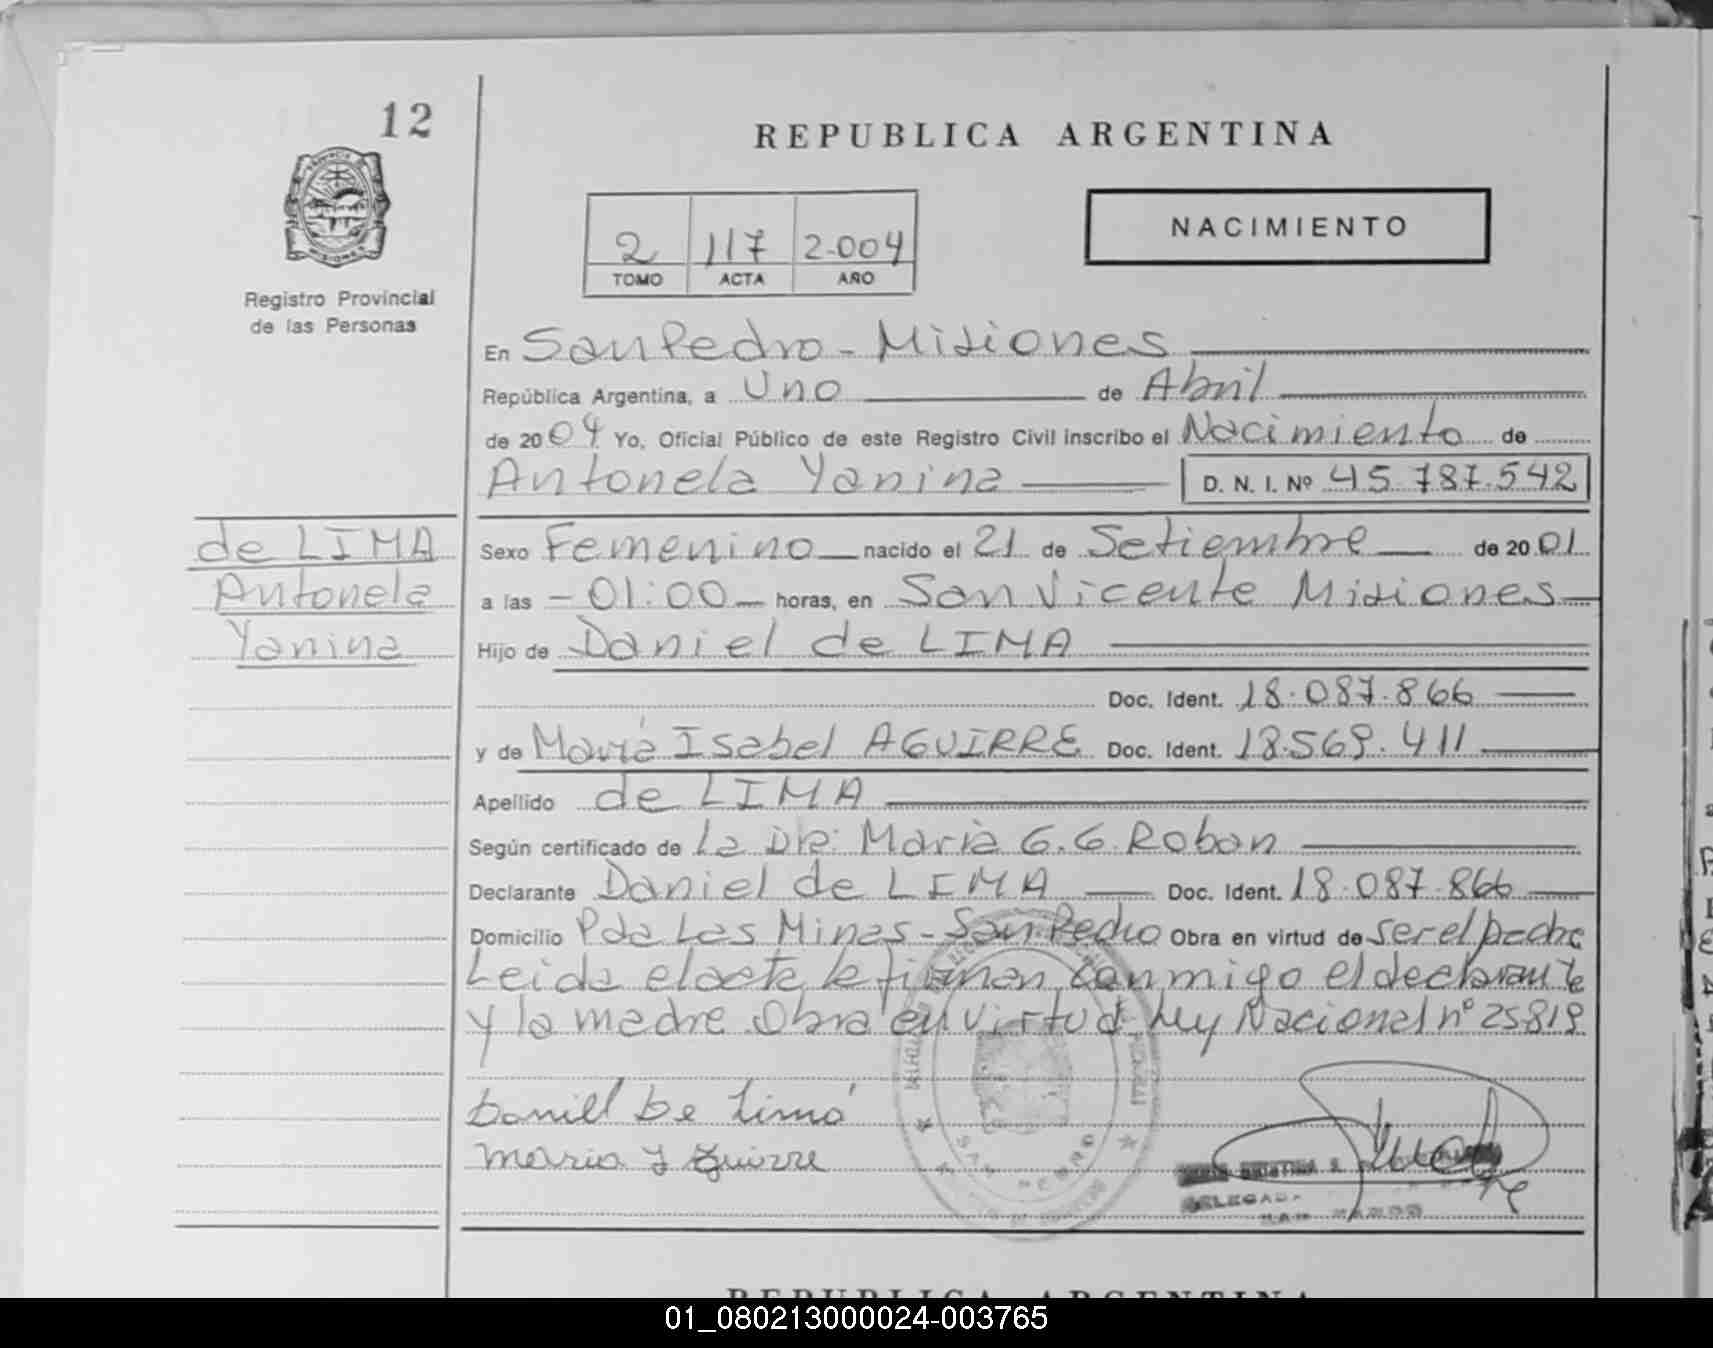 12
REPUBLICA ARGENTINA
NACIMIENTO
2 117 2.004
TOMO ACTA AÑO
Registro Provincial
de las Personas
En San Pedro - Misiones
República Argentina, a Uno de Abril
de 2004 Yo, Oficial Público de este Registro Civil inscribo el Nacimiento de
Antonela Yanina D. N. I. Nº 45.787.542
de LIMA
Antonela
Yanina
Sexo Femenino nacido el 21 de Setiembre de 2001
a las - 01:00 - horas, en San Vicente Misiones
Hijo de Daniel de LIMA
Doc. Ident. 18.087.866
y de María Isabel AGUIRRE Doc. Ident. 18.569.411
Apellido de LIMA
Según certificado de La DRa: María G. G. Roban
Declarante Daniel de LIMA Doc. Ident. 18.087.866
Domicilio Pda Las Minas - San Pedro Obra en virtud de ser el padre
Leida el acta le firman conmigo el declarante
y la madre Obra en virtud Ley Nacional nº 25819
Daniel De Lima
Maria I Aguirre
SAN PEDRO
DELEGADA
REPUBLICA ARGENTINA
01_080213000024-003765